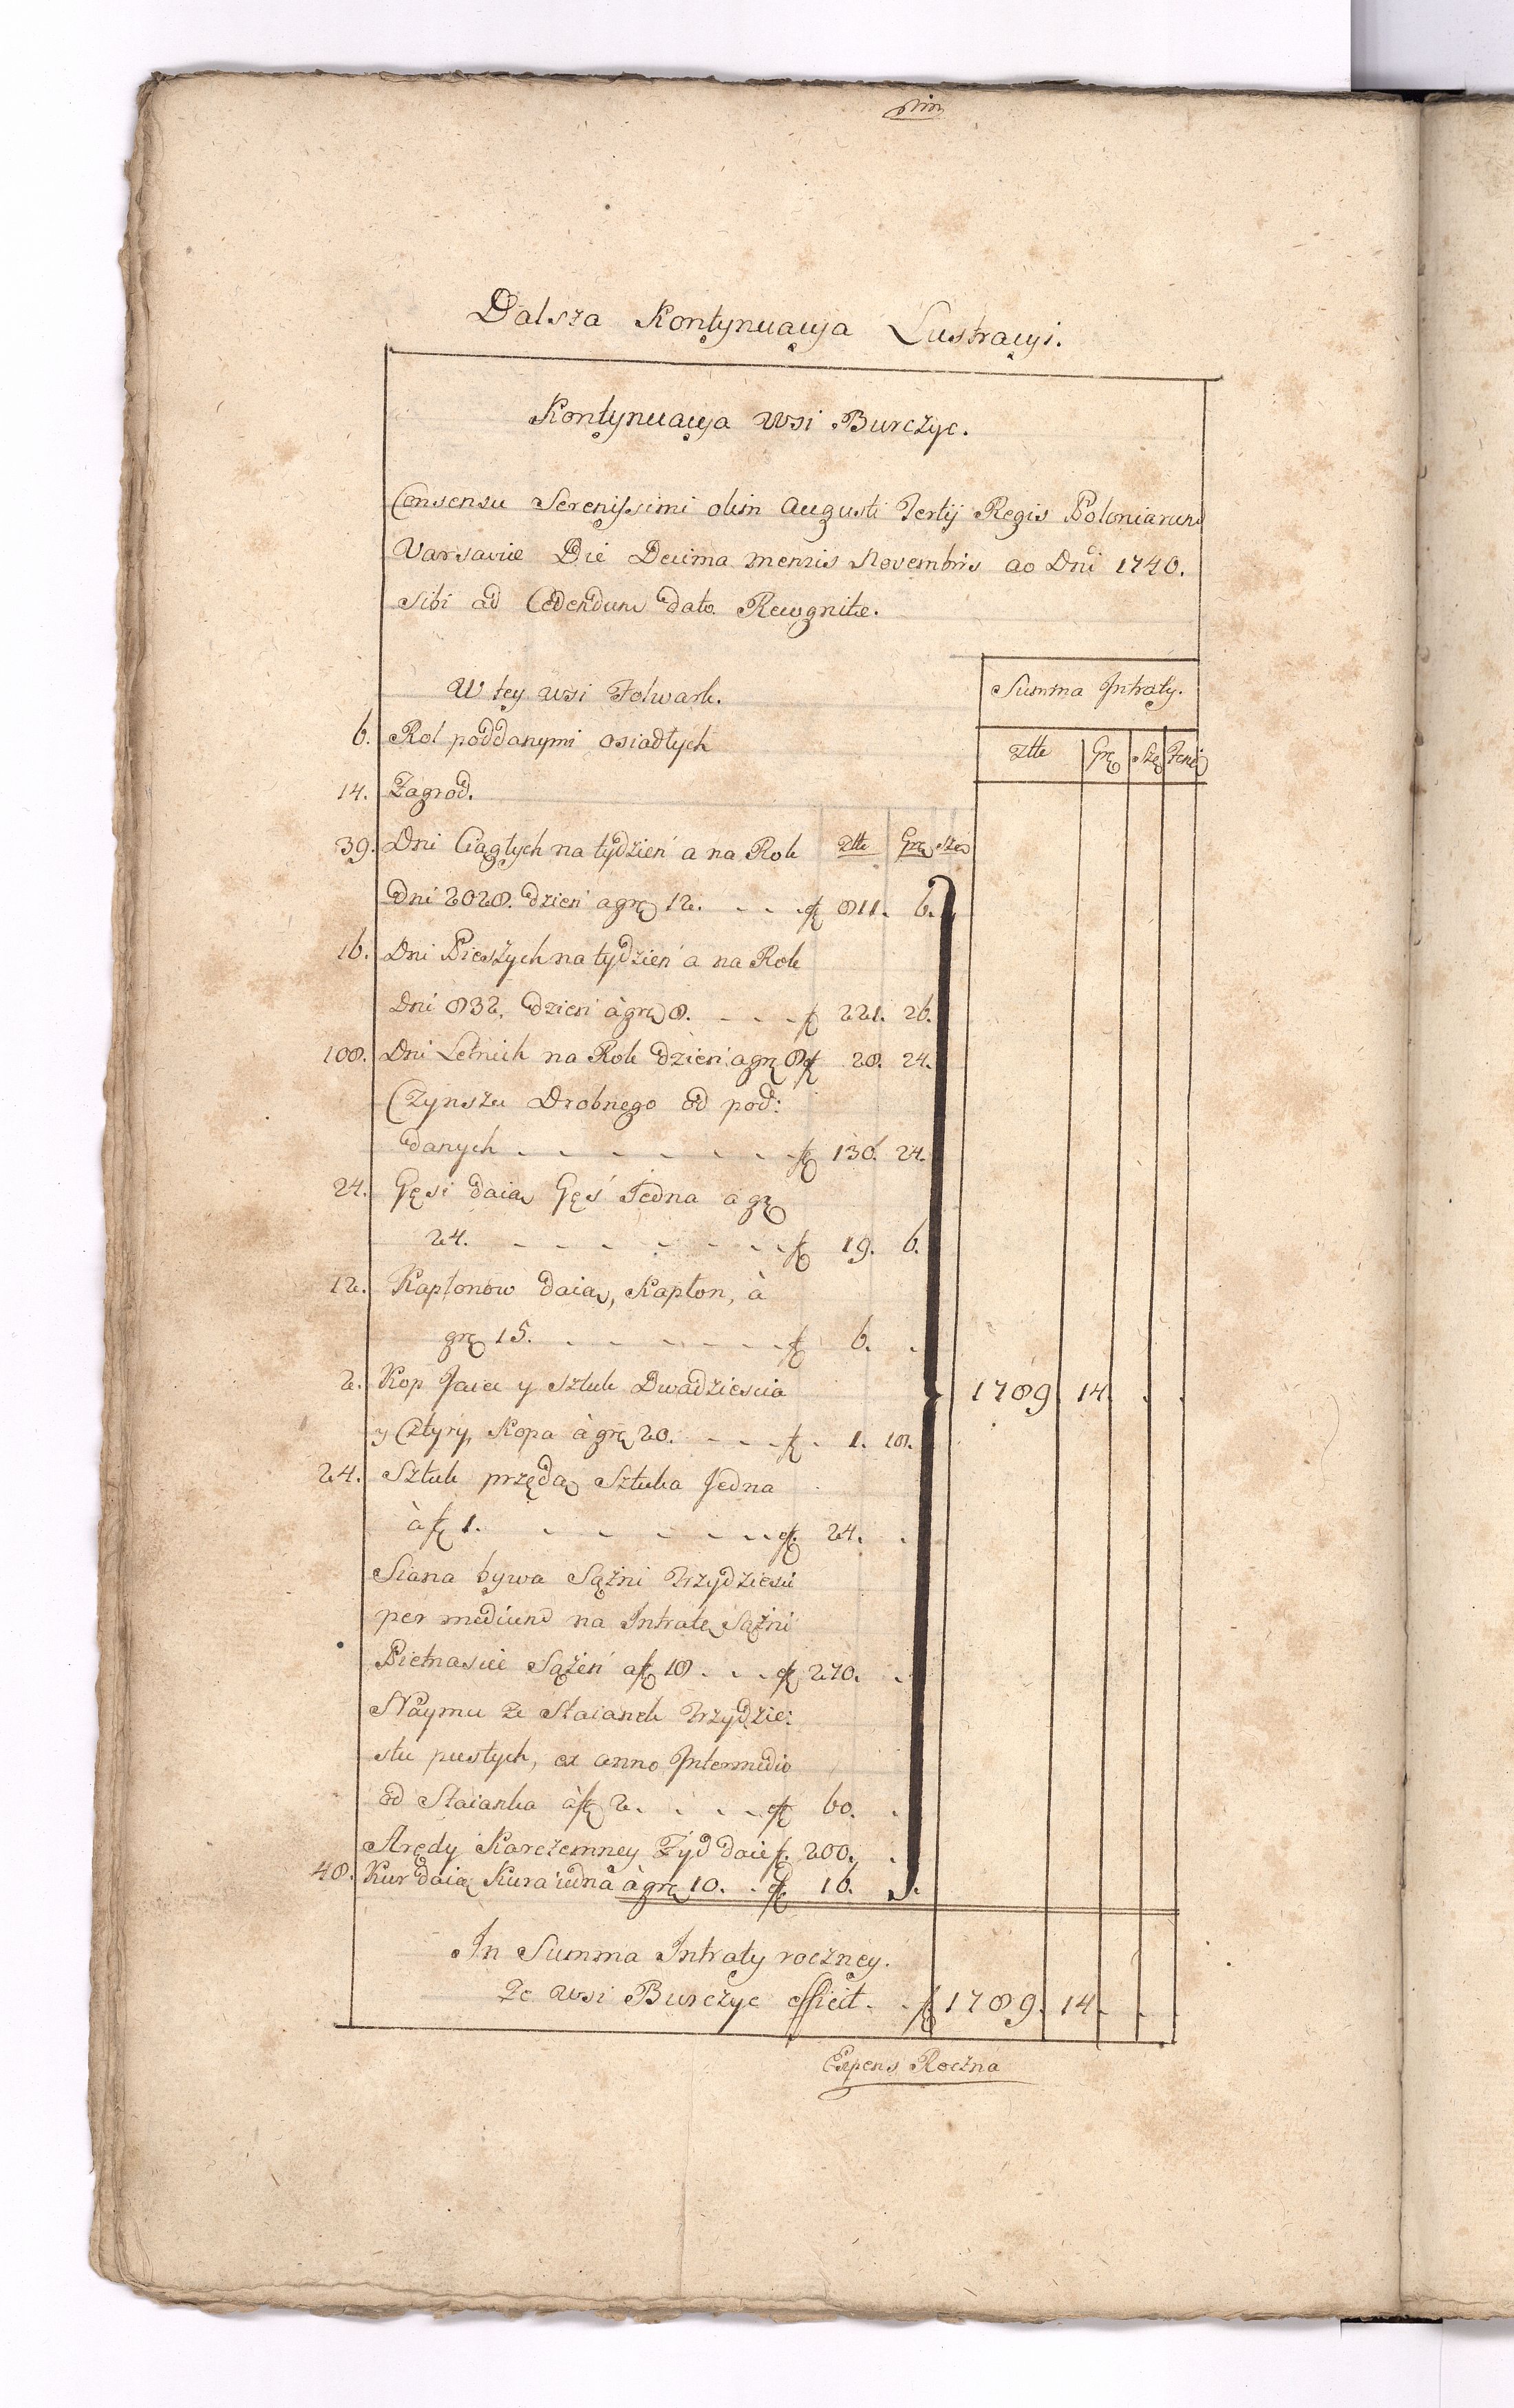 Dalsza Kontynuacya Lustracyi.
Kontynuacya wsi Burczyc.
Consensu Serenissimi olim Augusti Tertij Regis Poloniarum
Varsaviæ Die Decima mensis Novembris ao Dni 1740.
sibi ad Cedendum dato Recognitæ.
W tey wsi Folwark.
Summa Intraty.
6. Rol poddanymi osiadłych
Złłe Grę Sze Feni
14. Zagrod.
39. Dni Ciągłych na tydzień a na Rok Złłe Grę Sze
Dni 2028. dzień a grę 12. - - - f 811. 6.
16. Dni Pieszych na tydzień a na Rok
Dni 832. dzień à grę 8. - - - f 221. 26.
108. Dni Letnich na Rok dzień a grę 8 f 28. 24.
Czynszu Drobnego od pod:
danych - - - - - - - f 130. 24.
24. Gęsi daią Gęś Jedna a grę
24. - - - - - - - f 19. 6.
12. Kapłonow daią, Kapłon, à
grę 15. - - - - - - f 6. .
2. Kop Jaiec y sztuk Dwadziescia 1789. 14. . .
y Cztyry, Kopa à grę 20. - - - f 1. 18.
24. Sztuk przędą Sztuka Jedna
à f 1. - - - - - - f 24. .
Siana bywa Sążni Trzydzieści
per medium na Intratę Sążni
Pietnascie Sążeń a f 18 . - - f 270. .
Naymu ze Staianek Trzydzie:
stu pustych, ex anno Intermedio
od Staianka à f 2. . . - f 60. .
Arędy Karczemney Żyd daie f. 200. .
48. Kur daią Kura iedna à grę 10. . f 16. .
In Summa Intraty roczney.
Ze wsi Burczyc efficit. . f 1789. 14. . .
Expens Roczna